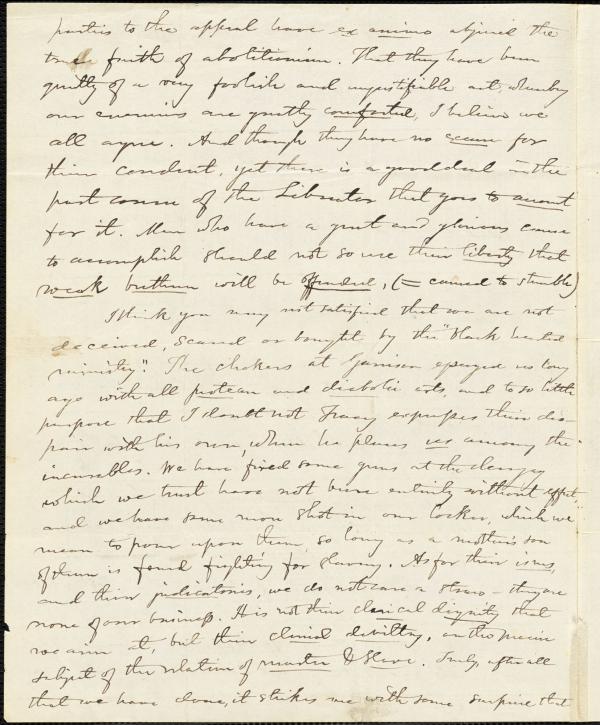 parties to the appeal have ex animo abjured the
true faith of abolitionism. That they have been
guilty of a very foolish and unjustifiable act, whereby
our enemies are greatly comforted, I believe we
all agree. And though they have no excuse for
their conduct, yet there is a good deal in the
past course of the Liberator that goes to account
for it. Men who have a great and glorious cause
to accomplish should not so use their liberty that
weak brethren will be offended, (= caused to stumble)
I think you may rest satisfied that we are not
deceived, scared or bought by the "black hearted
ministry". The chokers at Garrison us long
ago with all protean and diabolic arts, and to so little
purpose that I doubt not Tracy expresses their des-
pair with his own, when he places us among the
incurables. We have fixed some guns at the clergy
which we trust have not been entirely without effect
and we have some more shot in our locker, which we
mean to pour upon them, so long as a mother's son
of them is found fighting for slavery. As for their isms,
and their judicatories, we do not care a straw - they are
none of our business. It is not their clerical dignity that
we aim at, but their clerical deviltry, in the precise
subject of the relation of master & slave. Truly, after all
that we have done, it strikes me with some surprise that